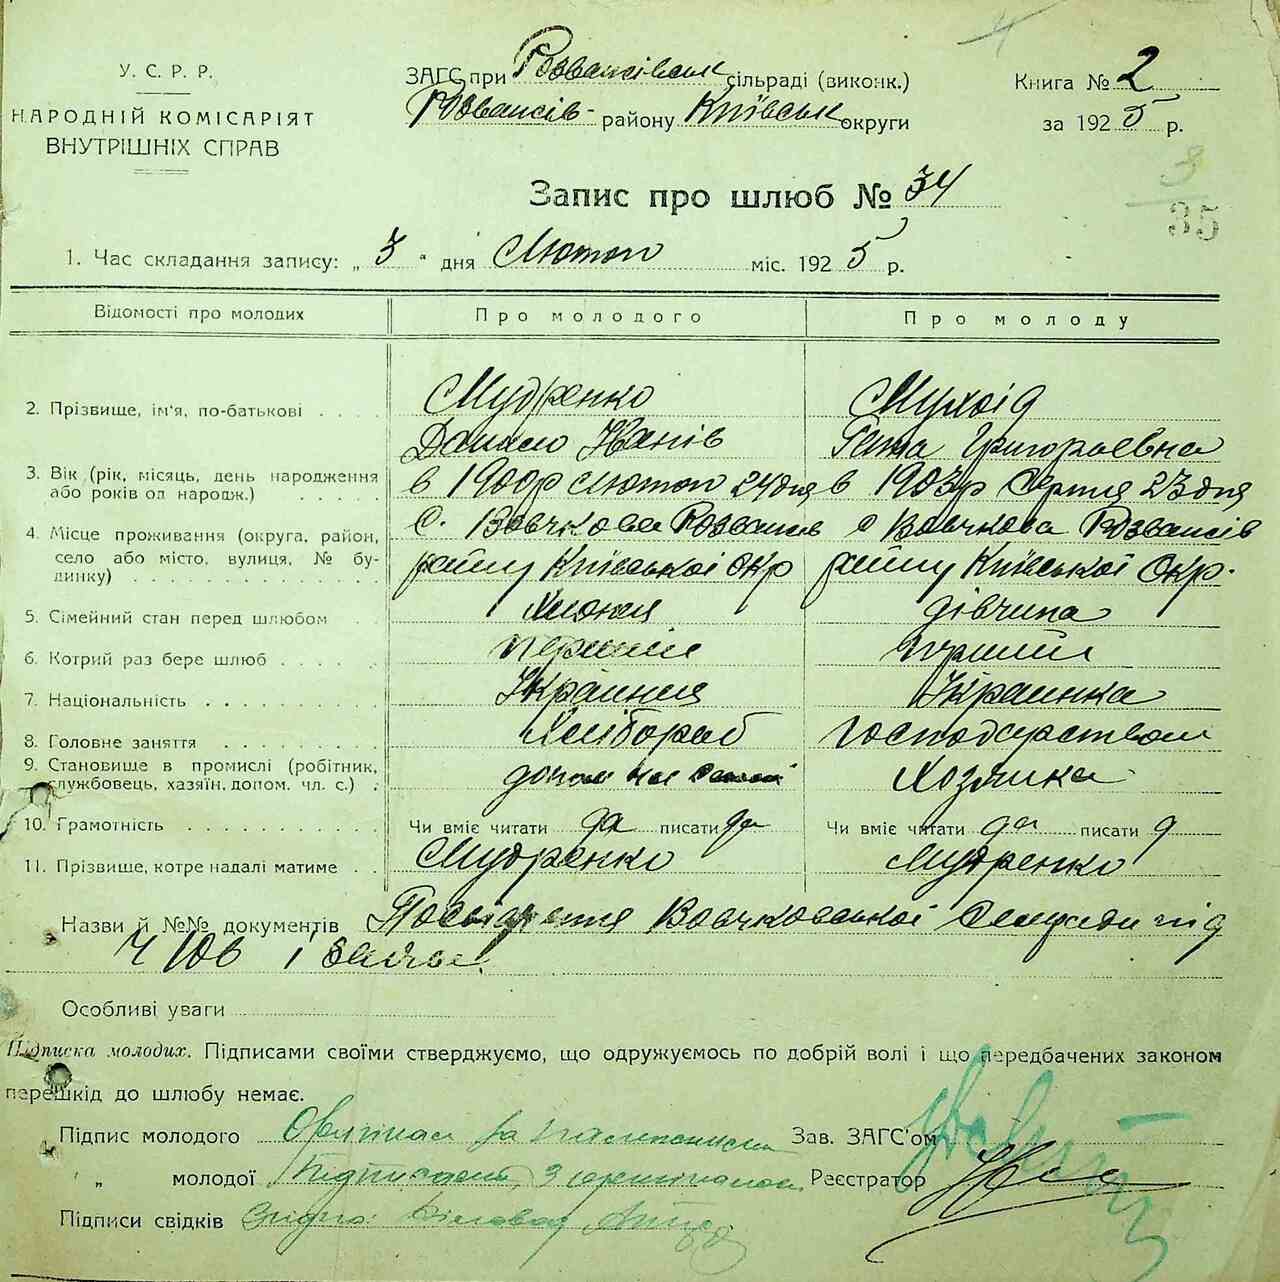 У. С. Р. Р.
НАРОДНІЙ КОМІСАРІЯТ
ВНУТРІШНІХ СПРАВ
ЗАГС при Розважівськ сільраді (виконк.)
Розважів- району Київськ округи
Книга № 2
за 1925 р.
Запис про шлюб № 34
8
35
1. Час складання запису: „ 3 " дня Лютого міс. 1925 р.
Відомості про молодих Про молодого Про молоду
2. Прізвище, ім'я, по-батькові Мудренко
Данило Іванів
Мухоїд
Григорьевна
3. Вік (рік, місяць, день народження або років од народж.) в 1900р Лютого 24 дня в 1903р Серпня 23 дня
4. Місце проживання (округа, район, село або місто, вулиця, № будинку) с. Вовчкова Розважів
району Київської Окр
с Вовчкова Розважів
району Київської Окр.
5. Сімейний стан перед шлюбом дівчина
6. Котрий раз бере шлюб перший перший
7. Національність Українець Українка
8. Головне заняття Хлібороб господарством
9. Становище в промислі (робітник, службовець, хазяїн, допом. чл. с.) допом чл семьї Хозяика
10. Грамотність Чи вміє читати да писати да Чи вміє читати да писати д
11. Прізвище, котре надалі матиме Мудренко Мудренко
Назви й №№ документів Посвідчення Вовчковської Сельради під
Ч 106 і
Особливі уваги
Підписка молодих. Підписами своїми стверджуємо, що одружуємось по добрій волі і що передбачених законом
перешкід до шлюбу немає.
Підпис молодого
Зав. ЗАГС'ом
„ молодої
Реєстратор
Підписи свідків